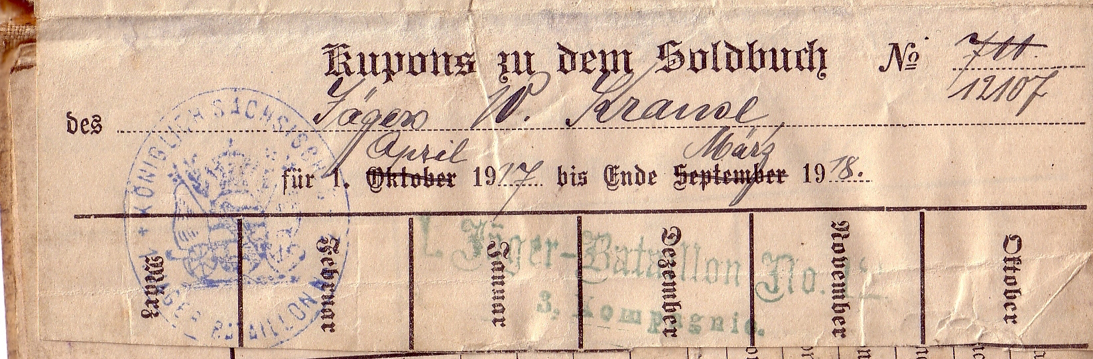 Kupons zu dem Soldbuch No 711
12107
des Jägers W. Krause
April März
für 1. Oktober 1917. bis Ende September 1918.
KÖNIGLICH SÄCHSISCHES
JÄGER BATAILLON
1. Jäger-Bataillon No. 12
3. Kompagnie.
März Februar Januar Dezember November Oktober